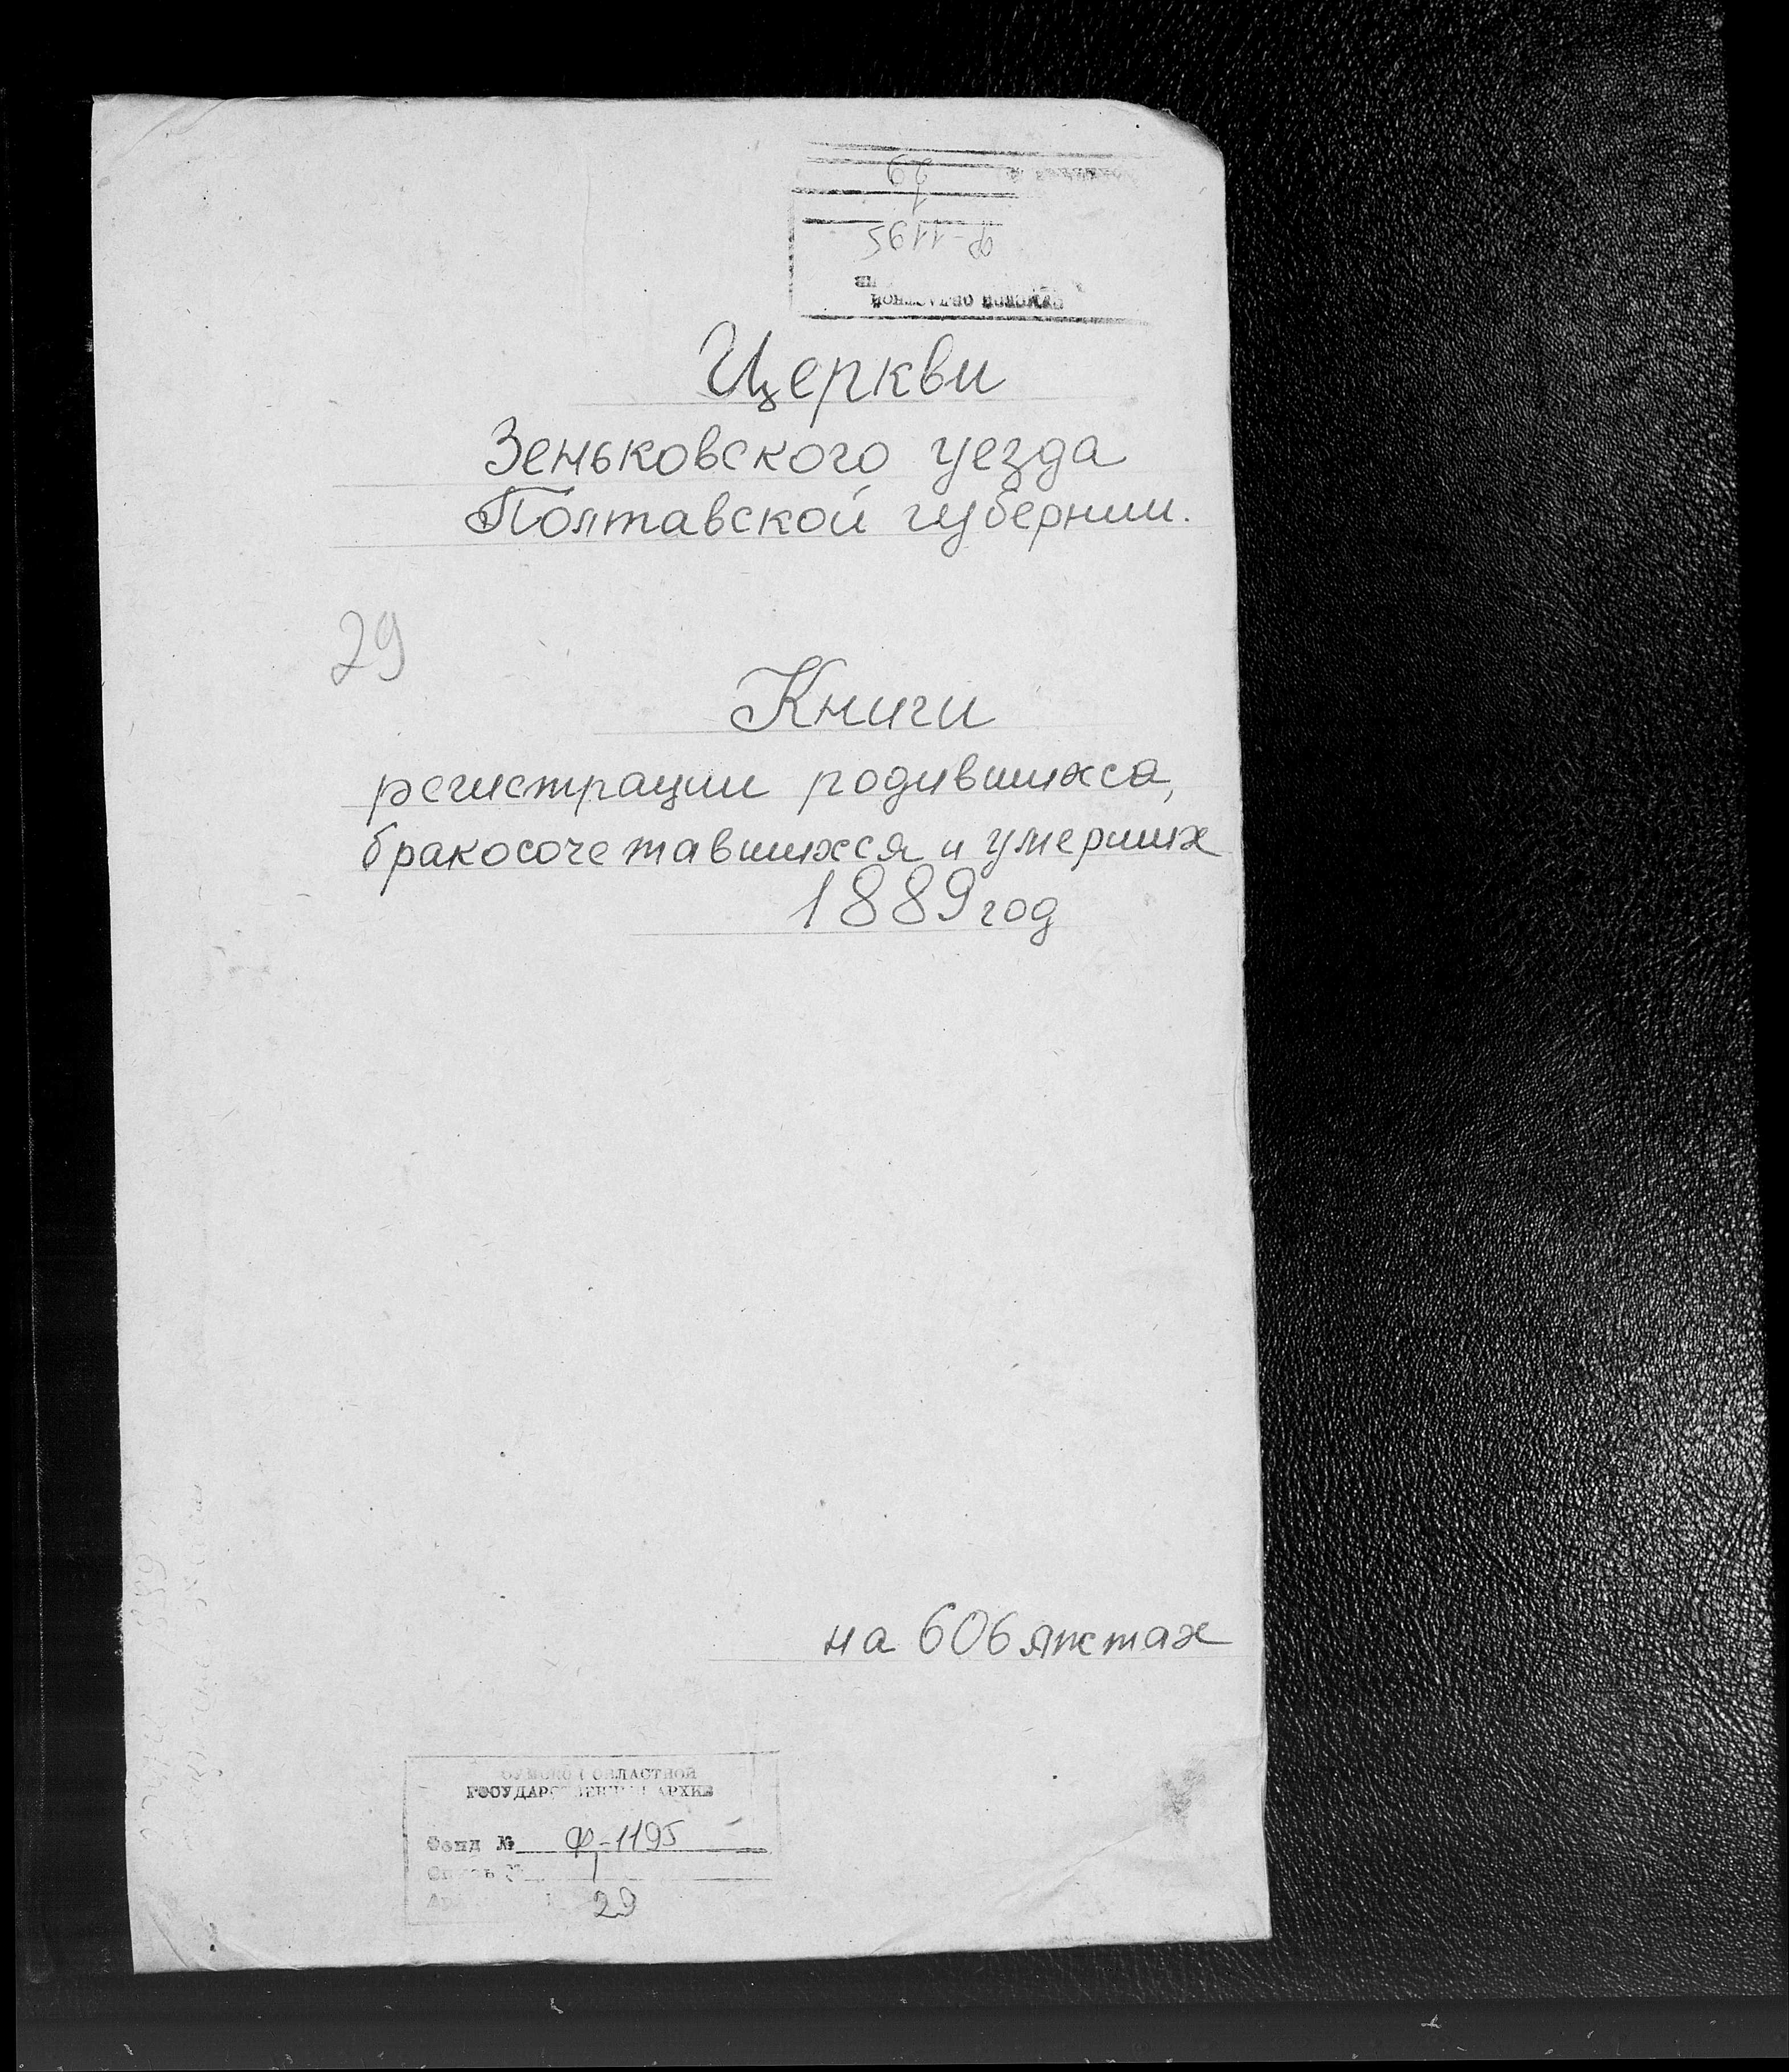 29
1
Ф-1195
СУМСКОЙ ОБЛАСТНОЙ
Церкви
Зеньковского уезда
Полтавской губернии.
29
Книги
регистрации родившихся,
бракосочетавшихся и умерших
1889 год
на 606 листах
СУМСКОЙ ОБЛАСТНОЙ
ГОСУДАРСТВЕННЫЙ АРХИВ
Фонд № Ф-1195
Опись № 1
29